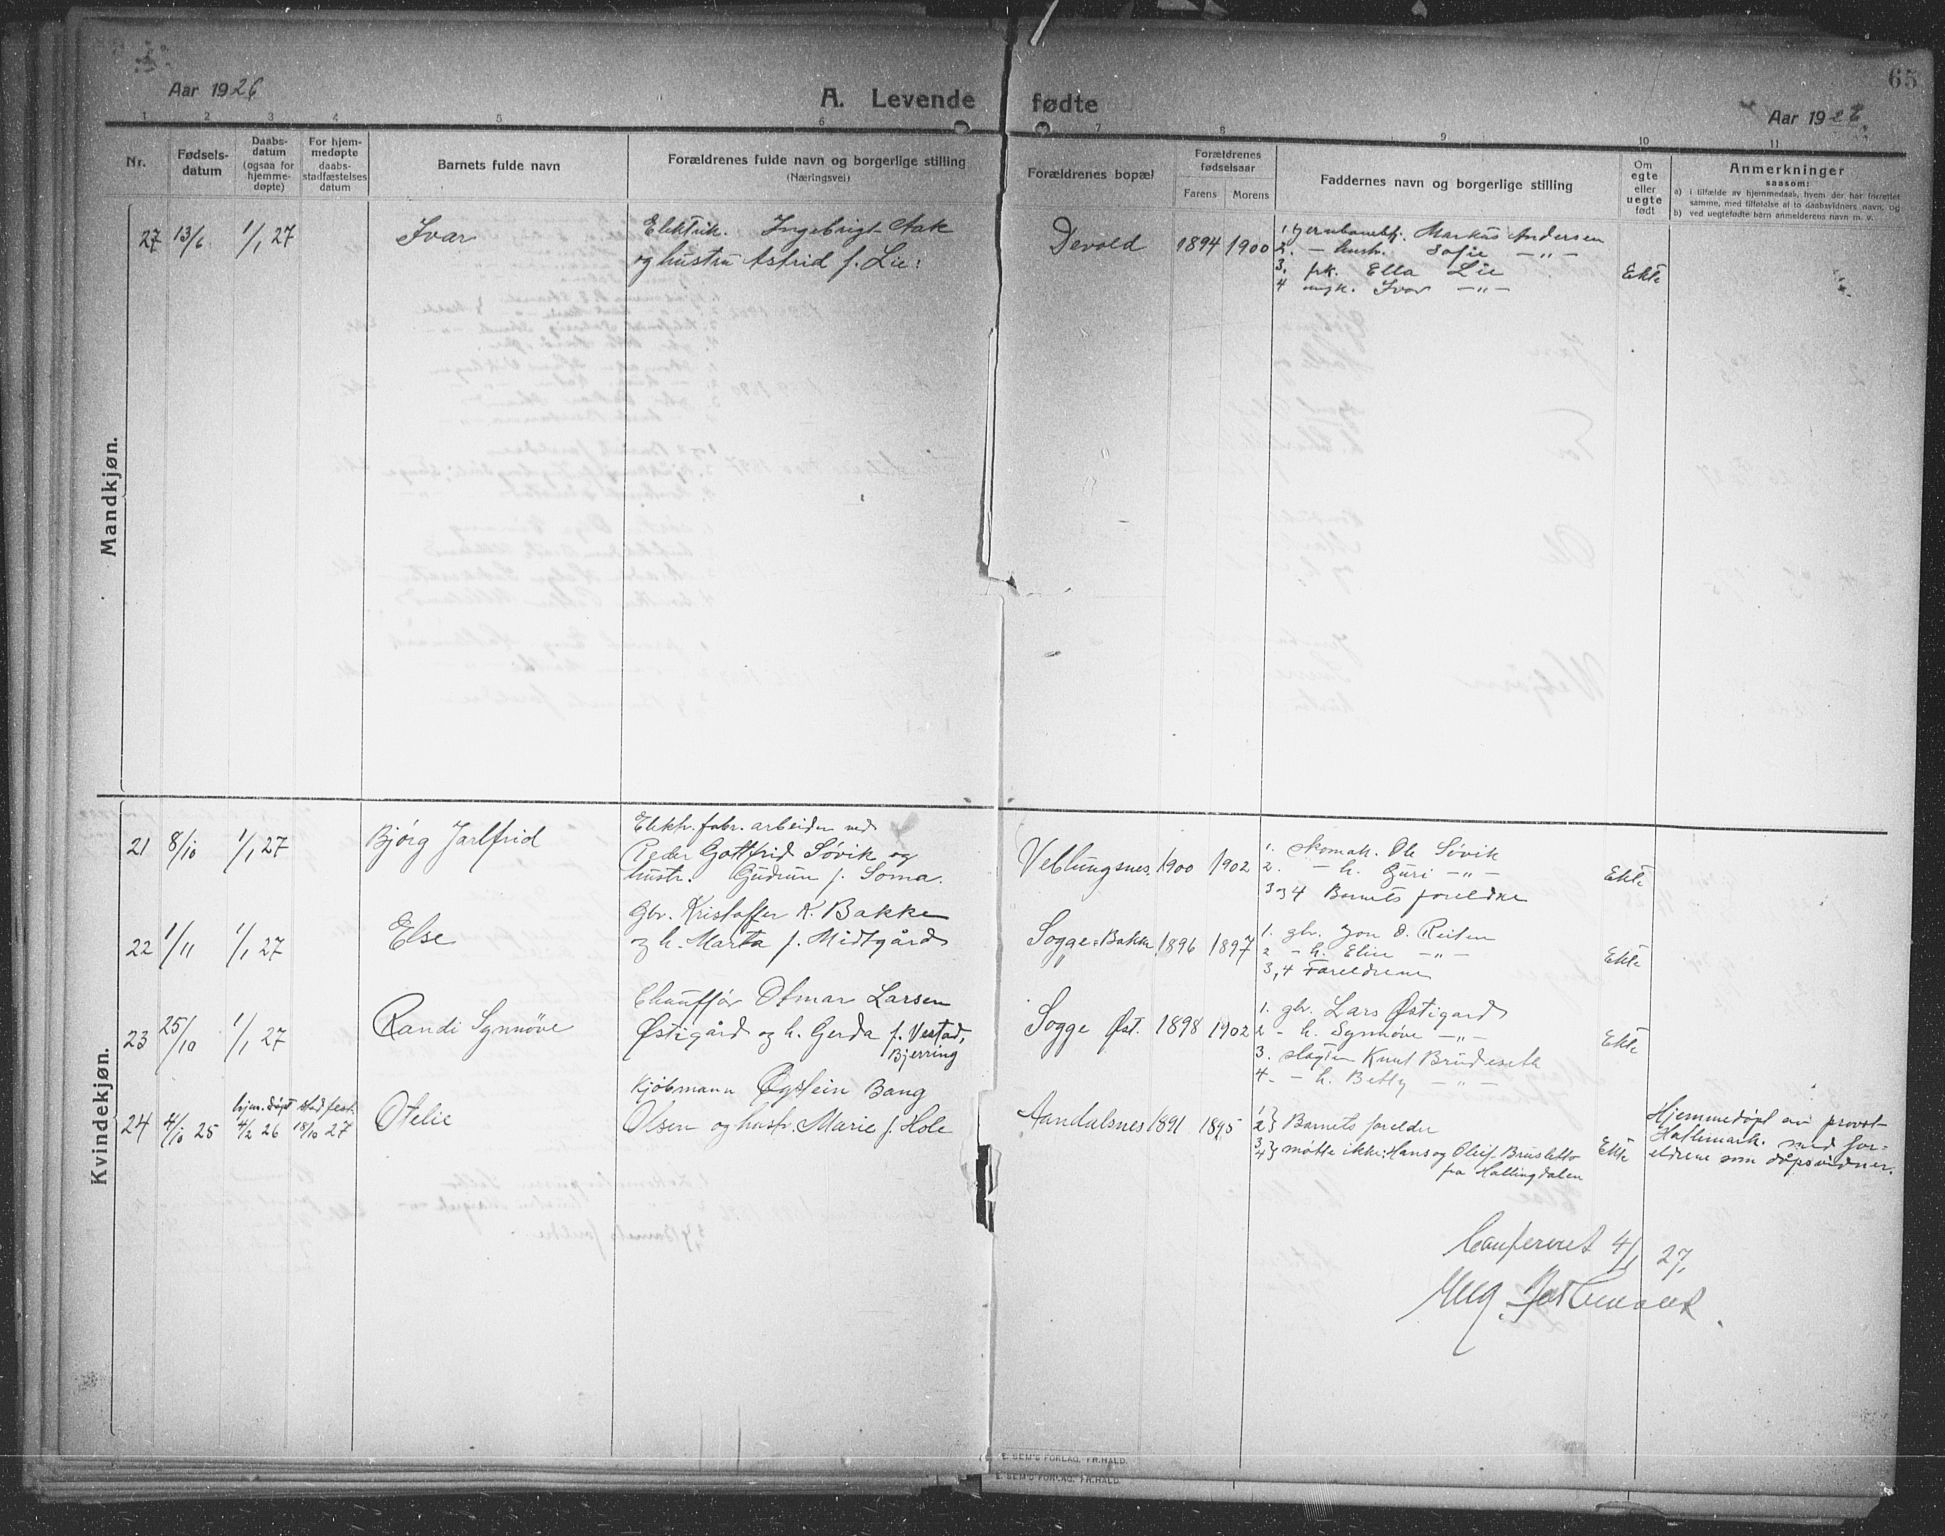 65
Aar 1926
A. Levende fødte
Aar 1926
1 2 3 4 5 6 7 8 9 10 11
Nr.
Fødsels-
datum
Daabs-
datum
(ogsaa for
hjemme-
døpte)
For hjem-
medøpte
daabs-
stadfæstelses
datum
Barnets fulde navn
Forældrenes fulde navn og borgerlige stilling
(Næringsvei)
Forældrenes bopæl
Forældrenes
fødselsaar
Farens Morens
Faddernes navn og borgerlige stilling
Om
egte
eller
uegte
født
Anmerkninger
saasom:
a) i tilfælde av hjemmedaab, hvem der har forrettet
samme, med tilføielse af to daabsvidners navn, og
b) ved uegtefødte barn anmelderens navn m. v.
Mandkjøn.
27 13/6 1/1 27 Ivar
Elektrik. Ingebrigt Aak
og hustru Astrid f. Lie:
Devold 1894 1900
1. jernbanebtj. Markus Andersen
2. — hustr. Sofie — " —
3. frk. Ella Lie
4 ungk. Ivar — " —
Ekte
Kvindekjøn.
21 8/10 1/1 27 Bjørg Jarlfrid
Elektr. fabr. arbeider ved
Peder Gottfrid Søvik og
hustr. Gudrun f. Soma.
Veblungsnes 1900 1902
1. skomak. Ole Søvik
2. — h. Guri — " —
3 og 4 Barnets foreldre
Ekte
22 1/11 1/1 27 Else
Gbr. Kristoffer K. Bakke
og h. Marta f. Midtgård
Sogge, Bakke 1896 1897
1. gbr. Jon O. Reiten
2 — h. Elin — " —
3, 4 Foreldrene
Ekte
23 25/10 1/1 27 Randi Synnøve
Chauffør Otmar Larsen
Østigård og h. Gerda f. Vestad,
Bjerring
Sogge Øst. 1898 1902
1. gbr. Lars Østigård
2 — h. Synnøve — " —
3. slagter Knut Brudeseth
4. — h. Betty — " —
Ekte
24 4/10 25 hjem. døpt 4/2 26 stadfest. 18/10 27 Otelie
Kjøbmann Øystein Bang
Olsen og hustr. Marie f. Hole
Aandalsnes 1891 1895
1 } 2 } Barnets forelder
3 } 4 } møtte ikke: Hans og Oleif Brusletto
fra Hallingdalen
Ekte
Hjemmedøpt av provst
Hathemark. med for-
eldrene som dåpsvidner.
Confereret 4/1 27,
E. SEM'S FORLAG, FR.HALD.
E. SEM'S FORLAG, FR.HALD.